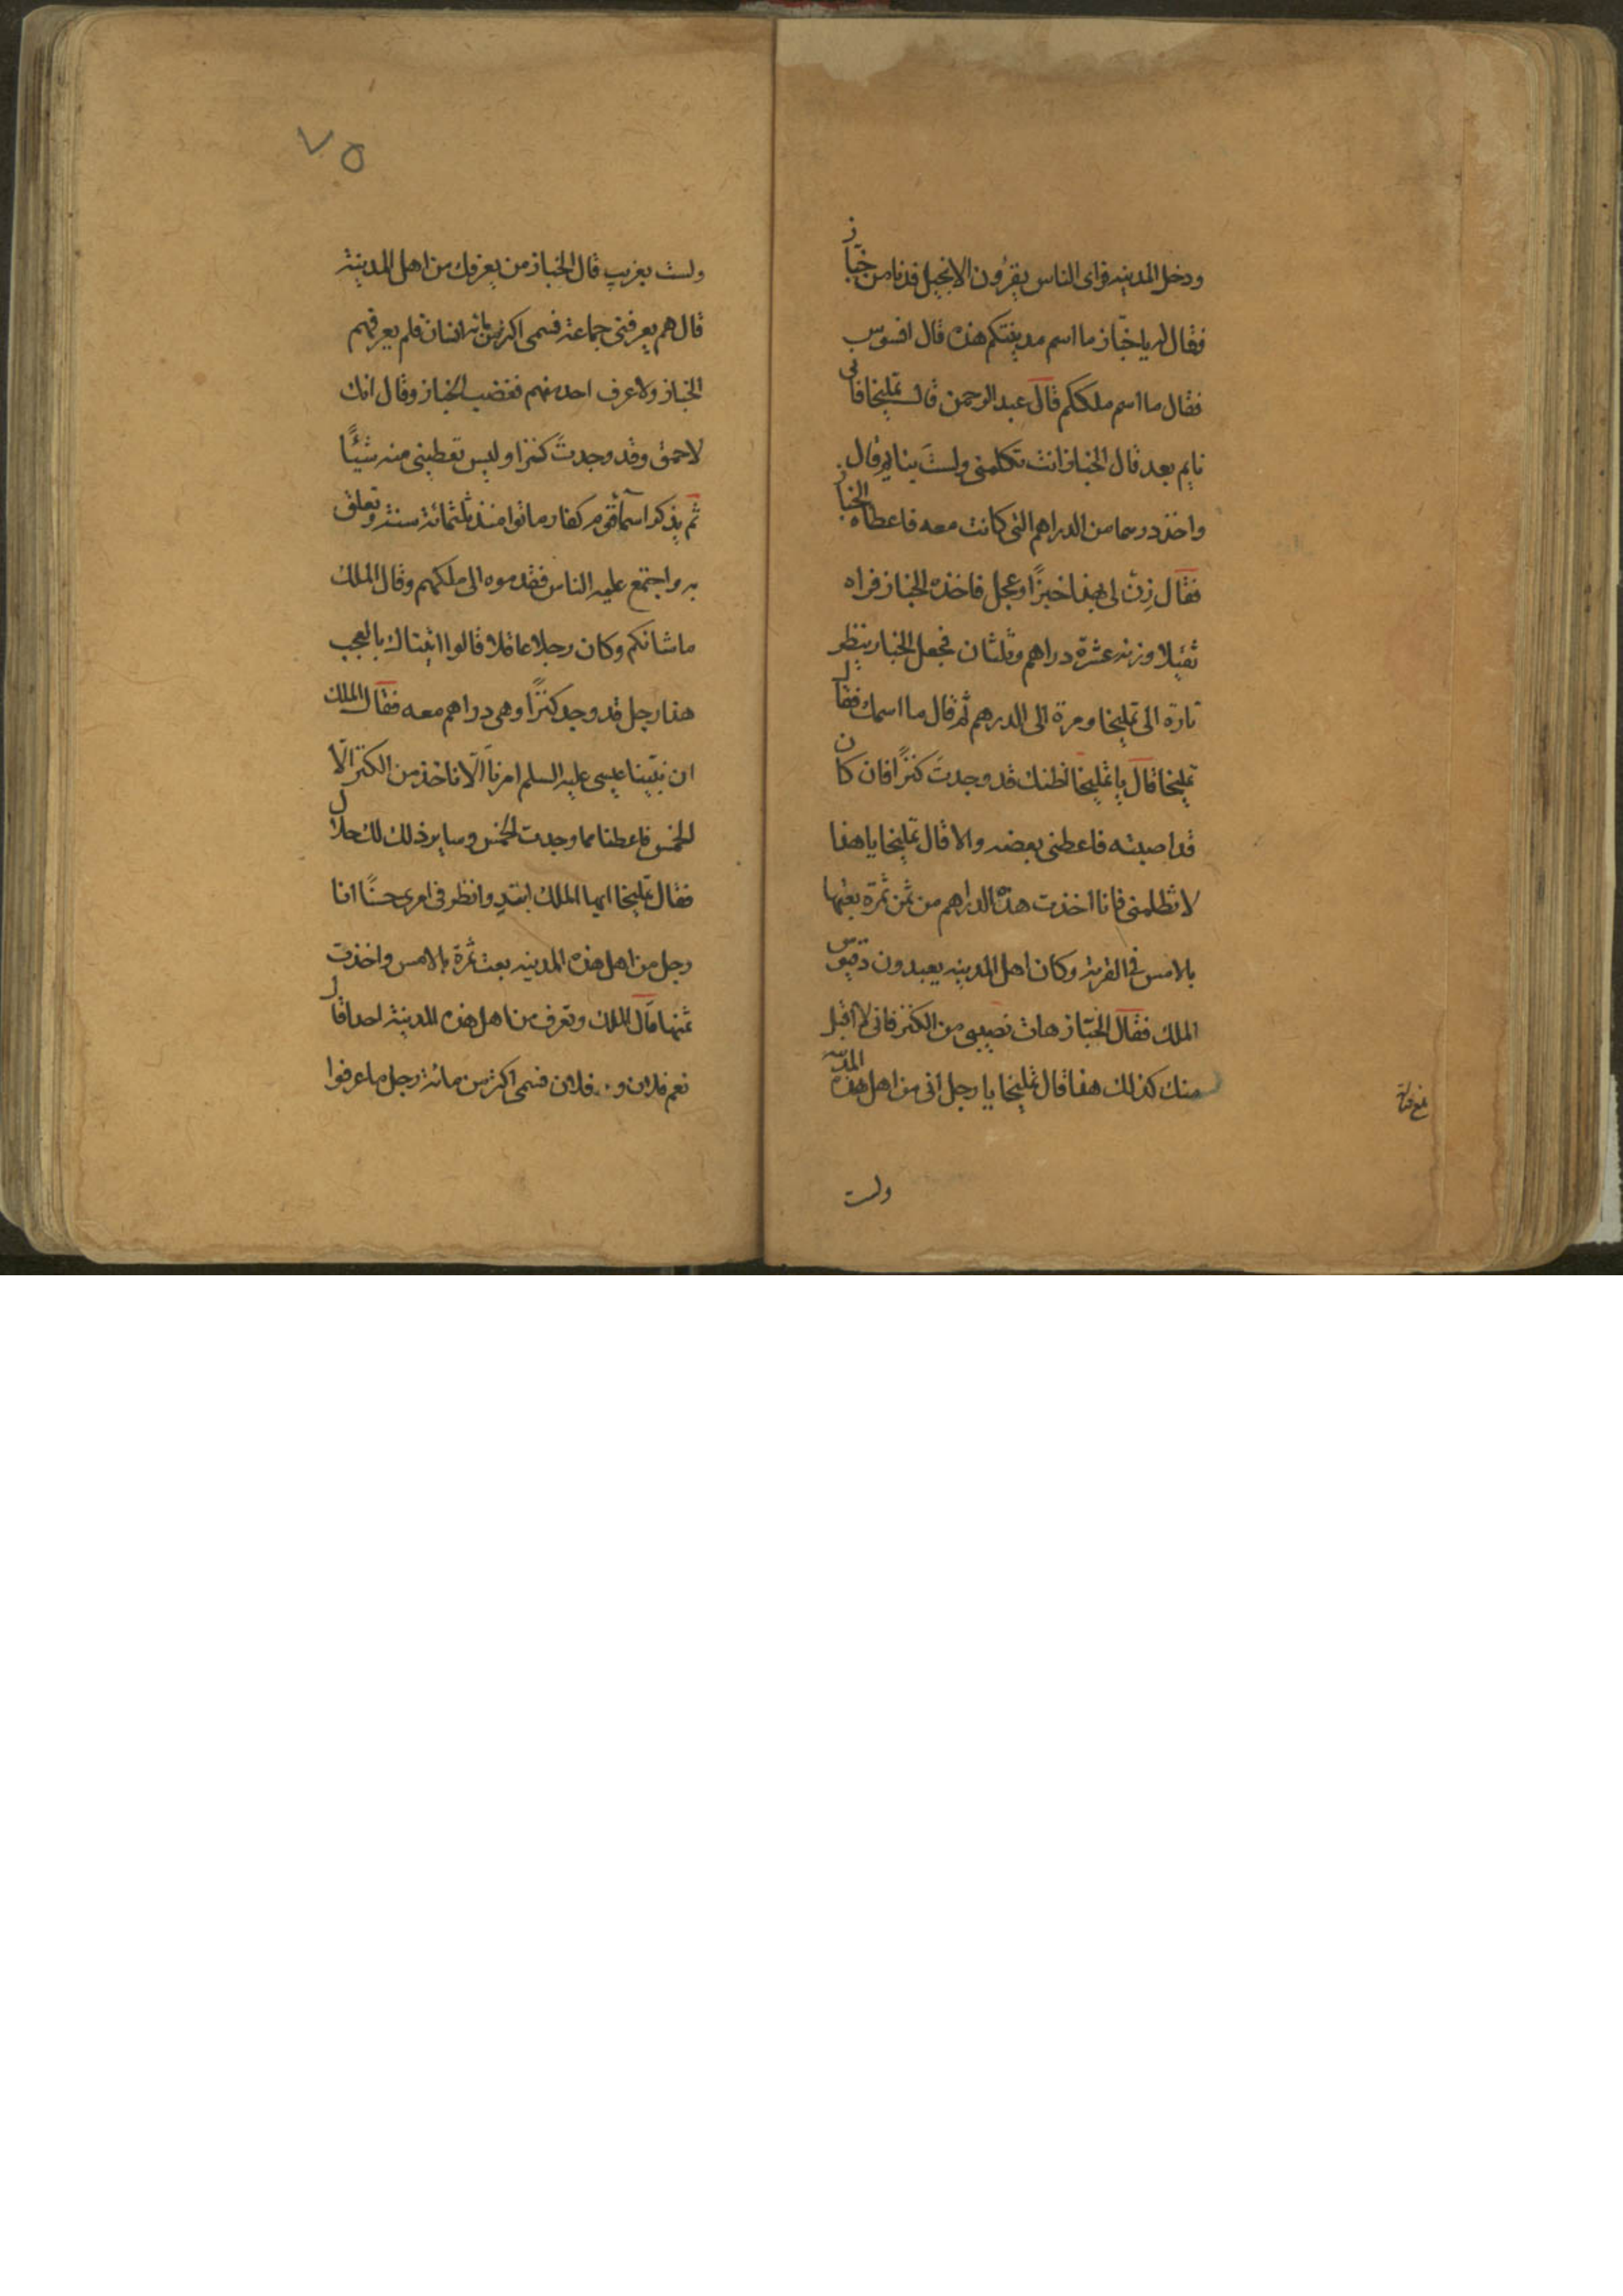 ودخل المدينه فراى الناس يقرؤن الانجيل فدنا من خبّاز
فقال له يا خبّاز ما اسم مدينتكم هذه قال افسوس
فقال ما اسم ملككم قال عبد الرحمن قالــ تمليخا فانى
نايم بعد قال الخباز انت تكلمنى ولستَ بنايم قال
واخذ درهما من الدراهم التى كانت معه فاعطاه الخباز
فقال زِنْ لى بهذا خبزًا وعجل فاخذه الخباز فراه
ثقيلا وزنه عشرة دراهم وثلثان فجعل الخباز ينظر
تارة الى تمليخا ومرة الى الدرهم ثم قال ما اسمك فقال
تمليخا قال يا تمليخا اظنك قد وجدتَ كنزًا فان كان
قد اصبته فاعطنى بعضه والا قال تمليخا يا هذا
لا تظلمنى فانا اخذت هذه الدراهم من ثمن ثمرة بعتها
بالامس فى القرية وكان اهل المدينه يعبدون دقيوس
الملك فقال الخبّاز هات نصيبى من الكنز فانى لا اقبل
منك كذلك هذا قال تمليخا يا رجل انى من اهل هذه المدينه
ولست
ولست بغريب قال الخباز من يعرفك من اهل المدينة
قال هم يعرفنى جماعة فسمى اكثر من مائة انسان فلم يعرفهم
الخباز ولا عرف احد منهم فغضب الخباز وقال انك
لاحمق وقد وجدتَ كنزا وليس تعطينى منه شيئًا
ثم يذكر اسماء قوم كفار ماتوا منذ ثلثمائة سنة وتعلق
به واجتمع عليه الناس فقدموه الى ملكهم وقال الملك
ما شانكم وكان رجلا عاقلا قالوا اتيناك بالعجب
هذا رجل قد وجد كنزًا وهى دراهم معه فقال الملك
ان نبيّنا عيسى عليه السلم امرنا الّا ناخذ من الكنز الّا
الخمس فاعطنا مما وجدت الخمس وساير ذلك لك حلال
فقال تمليخا ايها الملك ابتد وانظر فى امرى حسنًا انا
رجل من اهل هذه المدينه بعت ثمرة بالامس واخذت
ثمنها قال الملك وتعرف من اهل هذه المدينة احدا قال
نعم فلان و فلان فسمى اكثر من مائة رجل ما عرفوا
٧٥